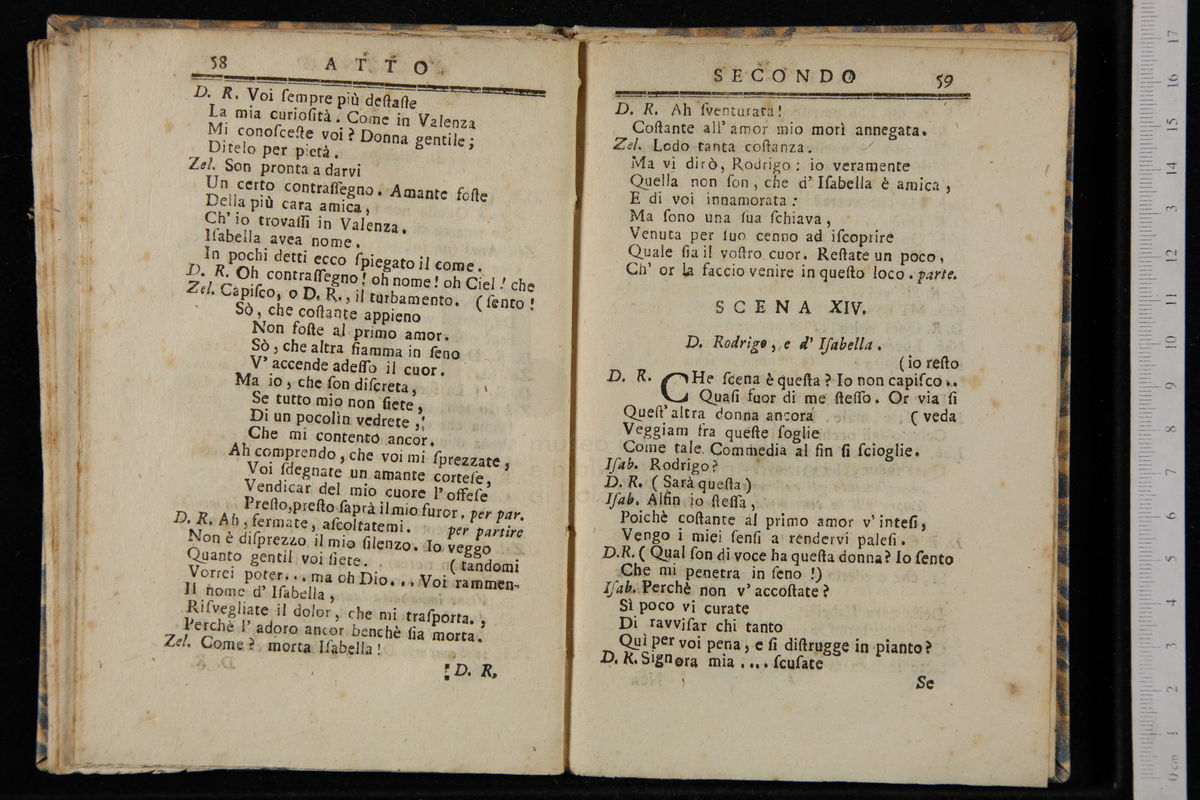 58 ATTO
D. R. Voi ſempre più deſtaſte
La mia curioſità. Come in Valenza
Mi conoſceſte voi? Donna gentile;
Ditelo per pietà.
Zel. Son pronta a darvi
Un certo contraſſegno. Amante foſte
Della più cara amica,
Ch' io trovaſſi in Valenza.
Iſabella avea nome.
In pochi detti ecco ſpiegato il come.
D. R. Oh contraſſegno! oh nome! oh Ciel! che
Zel. Capiſco, o D. R., il turbamento. (ſento!
Sò, che coſtante appieno
Non foſte al primo amor.
Sò, che altra fiamma in ſeno
V' accende adeſſo il cuor.
Ma io, che ſon diſcreta,
Se tutto mio non ſiete,
Di un pocolìn vedrete,
Che mi contento ancor.
Ah comprendo, che voi mi ſprezzate,
Voi ſdegnate un amante corteſe,
Vendicar del mio cuore l'offeſe
Preſto, preſto ſaprà il mio furor. per par.
D. R. Ah, fermate, aſcoltatemi. per partire
Non è diſprezzo il mio ſilenzo. Io veggo
Quanto gentil voi ſiete. (tandomi
Vorrei poter... ma oh Dio... Voi rammen-
Il nome d' Iſabella,
Riſvegliate il dolor, che mi traſporta.,
Perchè l' adoro ancor benchè ſia morta.
Zel. Come? morta Iſabella!
D. R.
SECONDO 59
D. R. Ah ſventurata!
Coſtante all' amor mio morì annegata.
Zel. Lodo tanta coſtanza.
Ma vi dirò, Rodrigo: io veramente
Quella non ſon, che d' Iſabella è amica,
E di voi innamorata:
Ma ſono una ſua ſchiava,
Venuta per ſuo cenno ad iſcoprire
Quale ſia il voſtro cuor. Reſtate un poco,
Ch' or la faccio venire in queſto loco. parte.
SCENA XIV.
D. Rodrigo, e d' Iſabella.
(io reſto
D. R. CHe ſcena è queſta? Io non capiſco..
Quaſi fuor di me ſteſſo. Or via ſi
Queſt' altra donna ancora (veda
Veggiam fra queſte ſoglie
Come tale Commedia al fin ſi ſcioglie.
Iſab. Rodrigo?
D. R. (Sarà queſta)
Iſab. Alfin io ſteſſa,
Poichè coſtante al primo amor v' inteſi,
Vengo i miei ſenſi a rendervi paleſi.
D.R. (Qual ſon di voce ha queſta donna? Io ſento
Che mi penetra in ſeno!)
Iſab. Perchè non v' accoſtate?
Sì poco vi curate
Di ravviſar chi tanto
Quì per voi pena, e ſi diſtrugge in pianto?
D. R. Signora mia .... ſcuſate
Se